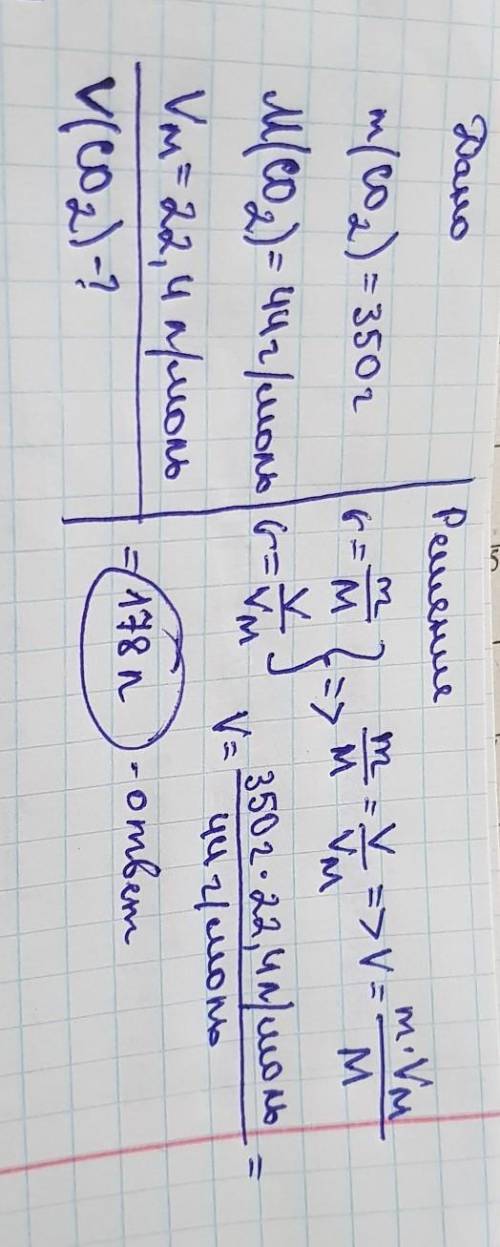 Дано
m(CO₂) = 350г
M(CO₂) = 44г/моль
Vм = 22,4 л/моль
V(CO₂) - ?
Решение
ν = m/M } => m/M = V/Vм => V = m·Vм/M
ν = V/Vм
V = 350г·22,4л/моль / 44г/моль =
= 178л - ответ